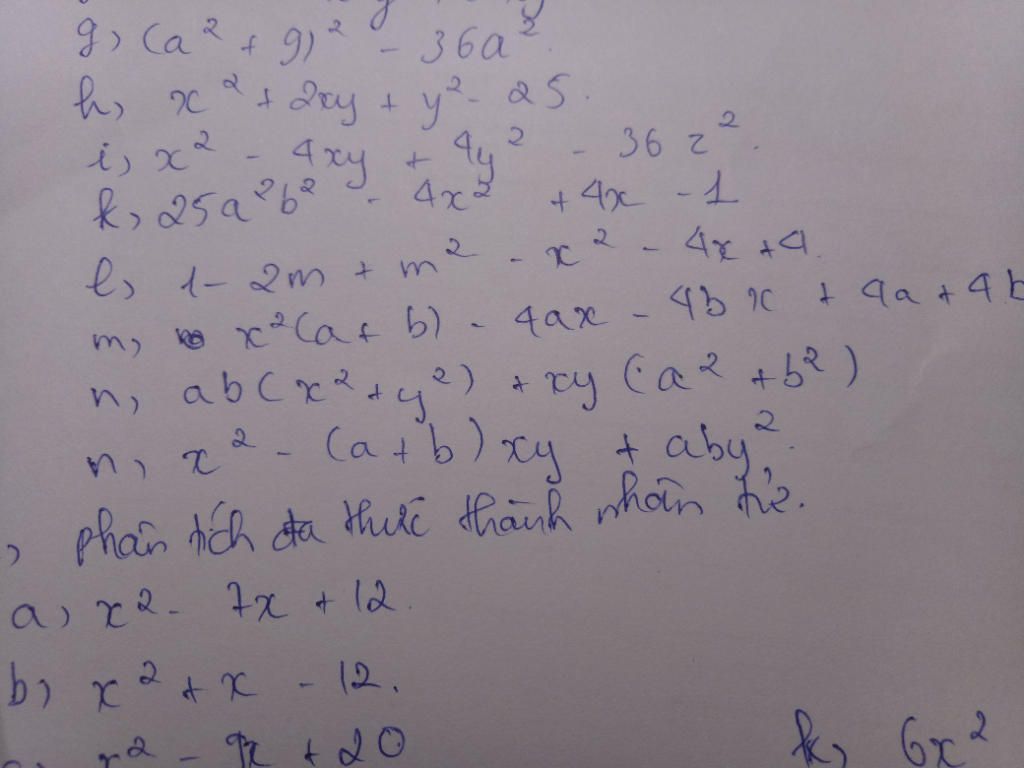 g) (a² + 9)² - 36a².
h) x² + 2xy + y² - 25.
i) x² - 4xy + 4y² - 36z².
k) 25a²b² - 4x² + 4x - 1
l) 1 - 2m + m² - x² - 4x + 4.
m) x²(a + b) - 4ax - 4bx + 4a + 4b
n) ab(x² + y²) + xy(a² + b²)
n) x² - (a + b)xy + aby².
, phân tích đa thức thành nhân tử.
a) x² - 7x + 12.
b) x² + x - 12.
x² - 9x + 20
k) 6x²